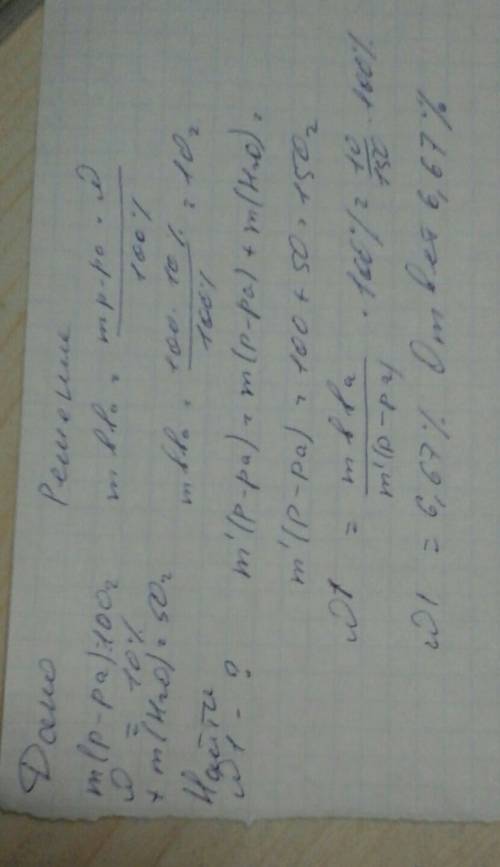 Дано
m(р-ра)=100г
ω = 10%
+ m(H2O)=50г
Найти
ω1 - ?
Решение
m вва = mр-ра · ω / 100%
m вва = 100 · 10% / 100% = 10г
m'(р-ра) = m(р-ра) + m(H2O) =
m'(р-ра) = 100 + 50 = 150г
ω1 = m вва / m'(р-ра) · 100% = 10/150 · 100%
ω1 = 6,67% Ответ 6,67%